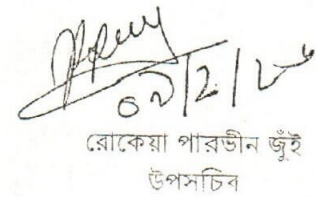 ০৯/2/২৬
রোকেয়া পারভীন জুঁই
উপসচিব